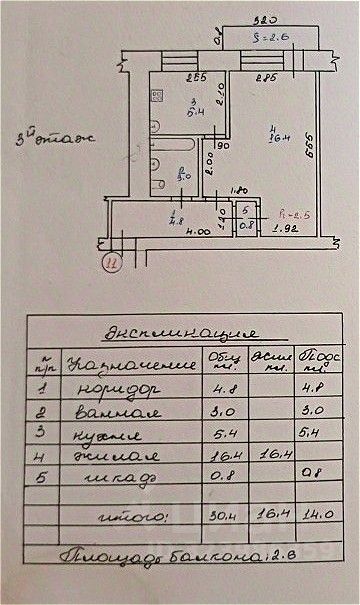 320
0.8
S=2.6
255
285
3
5.4
2.10
90
4
16.4
5.55
3й этаж
2
3.0
2.00
1.80
1
4.8
4.00
1.20
5
0.8
h=2.5
1.92
11
Экспликация
N п/п Назначение Общ пл. Жил пл. Подс пл.
1 коридор 4.8 4.8
2 ванная 3.0 3.0
3 кухня 5.4 5.4
4 жилая 16.4 16.4
5 шкаф 0.8 0.8
итого: 30.4 16.4 14.0
Площадь балкона: 2.6